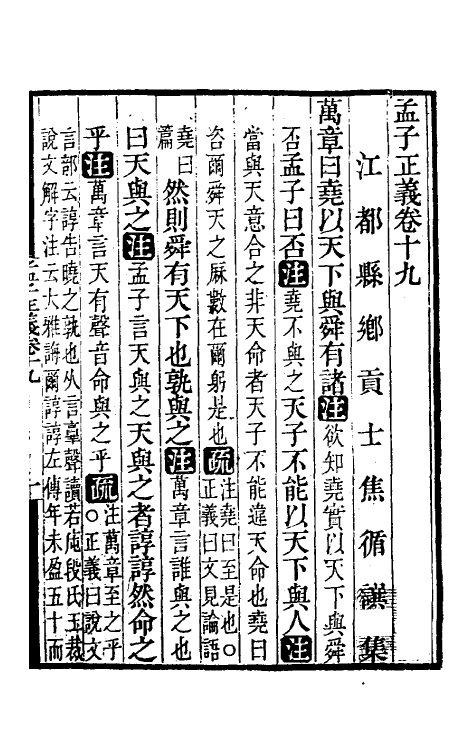 孟子正義卷十九
江都縣鄉貢士焦循譔集
萬章曰堯以天下與舜有諸注欲知堯實以天下與舜
否孟子曰否注堯不與之天子不能以天下與人注
當與天意合之非天命者天子不能違天命也堯曰
咨爾舜天之厤數在爾躬是也疏注堯曰至是也○
正義曰文見論語
堯曰
篇然則舜有天下也孰與之注萬章言誰與之也
曰天與之注孟子言天與之天與之者諄諄然命之
乎注萬章言天有聲音命與之乎疏注萬章至之乎
○正義曰說文
言部云諄告曉之孰也从言𦎫聲讀若庉段氏玉裁
說文解字注云大雅誨爾諄諄左傳年未盈五十而